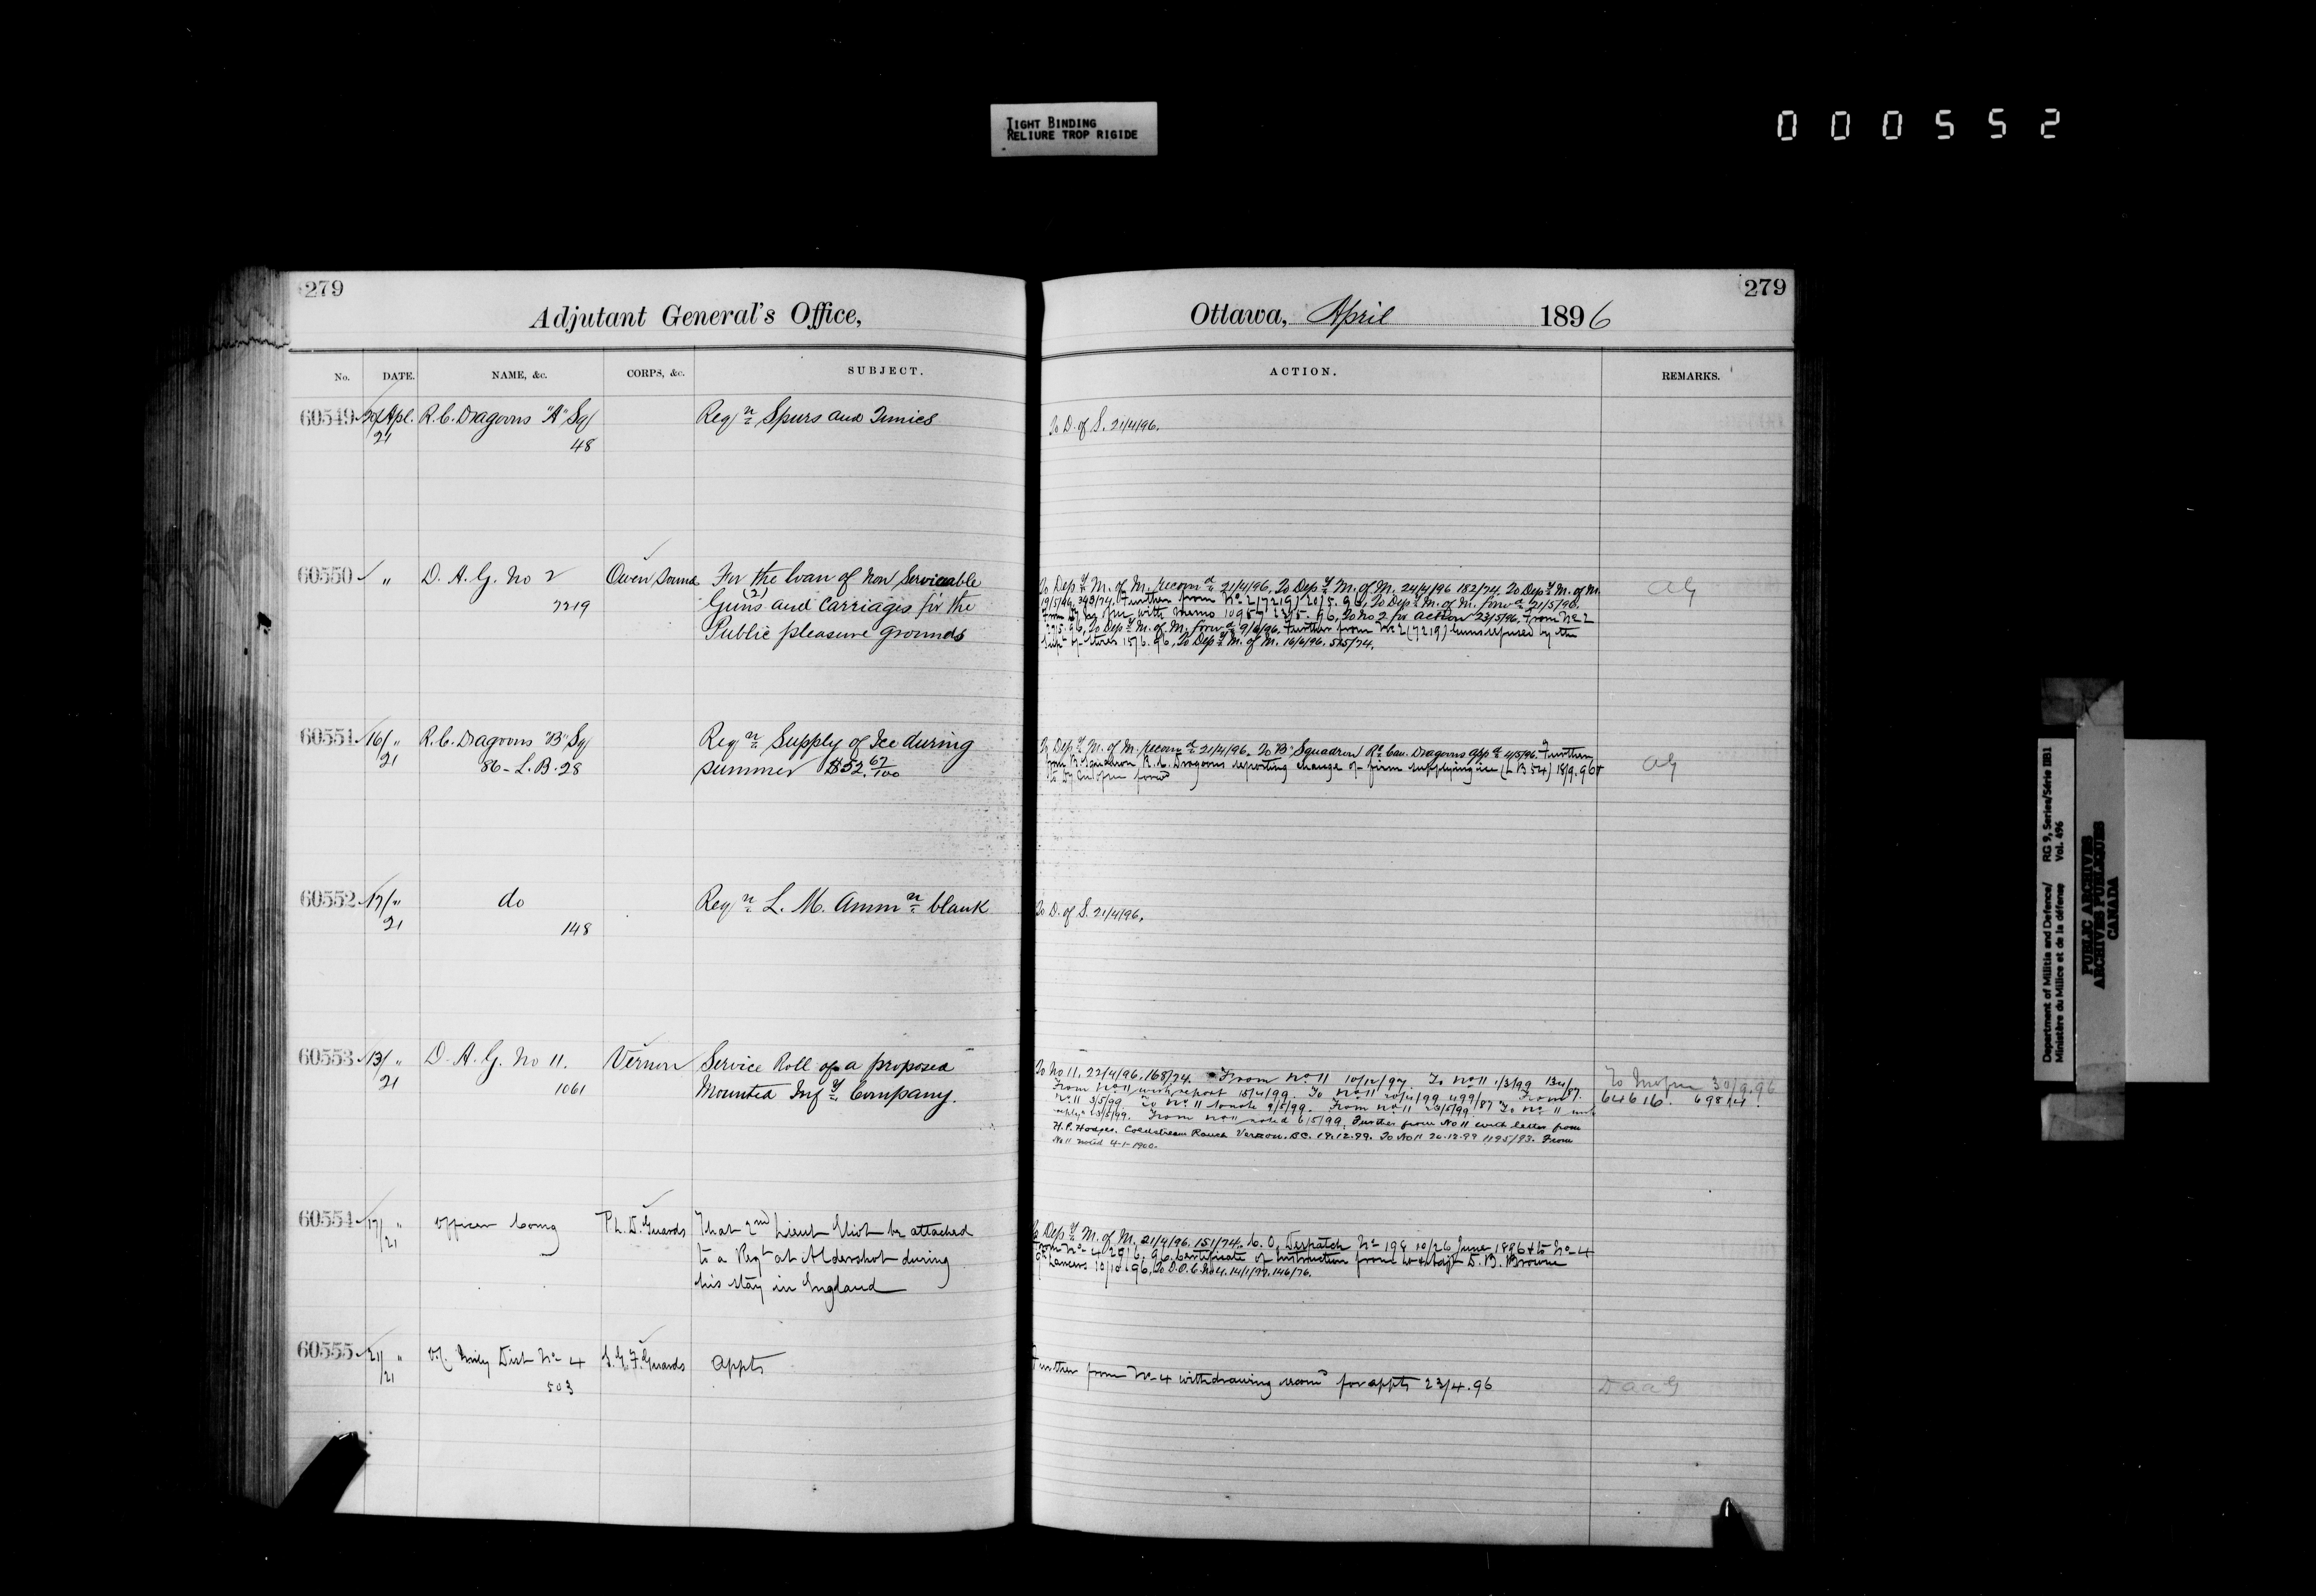 TIGHT BINDING
RELIURE TROP RIGIDE
000552
279
Adjutant General's Office,
No. DATE. NAME, &c. CORPS, &c. SUBJECT.
60549 20/Apl. R.C. Dragoons "A" Sq Reqn Spurs and Tunics
21 48
60550 " D. A. G. No 2 Owen Sound For the loan of non Serviceable
7219 Guns (2) and Carriages for the
Public pleasure grounds
60551 16/ " R.C. Dragoons "B" Sq Reqn Supply of Ice during
21 86 - L.B. 28 summer $52. 67/100
60552 17/ " do Reqn L. M. Ammn blank
21 148
60553 13/ " D. A. G. No 11. Vernon Service Roll of a proposed
21 1061 Mounted Infy Company.
60554 17/ " Officer Comg P.L. D. Guards That 2nd Lieut Eliot be attached
21 to a Regt at Aldershot during
his stay in England
60555 21/ " Dist No 4 G. G. F. Guards Appts
21 503
279
Ottawa, April 1896
ACTION. REMARKS.
To D. of S. 21/4/96.
To Depy M. of M. recomd 21/4/96. To Depy M. of M. 24/4/96 182/74. To Depy M. of M. AG
19/5/96. 343/74. Further from No 2 (7219) 20/5.96. To Depy M. of M. forwd 21/5/96.
with memo 10957 23/5.96. To No 2 for action 23/5/96. From No 2
29/5.96. To Depy M. of M. forwd 9/6/96. Further from No 2 (7219) Guns refused by the
Supt of Stores 15/6.96. To Depy M. of M. 16/6/96. 515/74.
To Depy M. of M. recomd 21/4/96. To "B" Squadron Rl Can. Dragoons appd 4/5/96. Further
from B. Squadron R. C. Dragoons reporting change of firm supplying ice (L B 54) 18/9.96 AG
To D. of S. 21/4/96.
To No 11, 22/4/96. 168/74. From No 11 10/12/97. To No 11 1/3/99 134/87. To 30/9.96
From No 11 with report 15/4/99. To No 11 20/4/99 499/87 From 64616. 69814.
No 11 3/5/99 To No 11 9/5/99. From No 11 23/5/99. To No 11
23/5/99. From No 11 noted 6/5/99. Further from No 11 with letter from
H.P. Hodges. Coldstream Ranch Vernon. B.C. 19.12.99. To No 11 26.12.99 1195/93. From
No 11 noted 4-1-1900.
To Depy M. of M. 21/4/96. 151/74. C. O. Despatch No 198 10/26 June 1896 & to No 4
From No 4 29/6.96. Certificate of Instruction from Lt & Adjt D. B. Browne
9th Lancers 10/10/96. To D.O.C. No 4. 14/1/97. 146/76.
Further from No 4 withdrawing recomd for appts 23/4.96 DAAG
Department of Militia and Defence/ RG 9, Series/Série IIB1
Ministère du Milice et de la défense, Vol. 496
PUBLIC ARCHIVES
ARCHIVES PUBLIQUES
CANADA